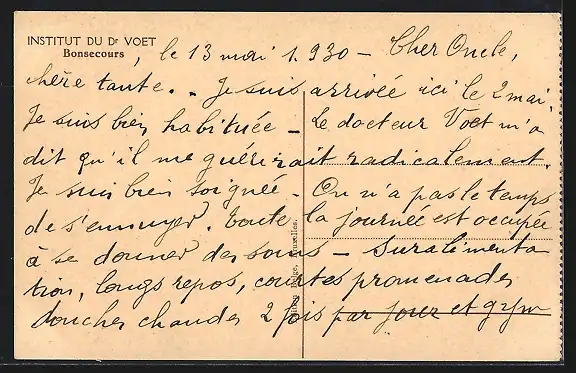 INSTITUT DU Dr VOET
Bonsecours, le 13 mai 1.930 – Cher Oncle,
chère tante. - Je suis arrivée ici le 2 mai.
Je suis bien habituée – Le docteur Voet m'a
dit qu'il me guérirait radicalement.
Je suis bien soignée. On n'a pas le temps
de s'ennuyer. Toute la journée est occupée
à se donner des soins – Suralimenta
tion, longs repos, courtes promenades
douches chaudes 2 fois par jour et gym